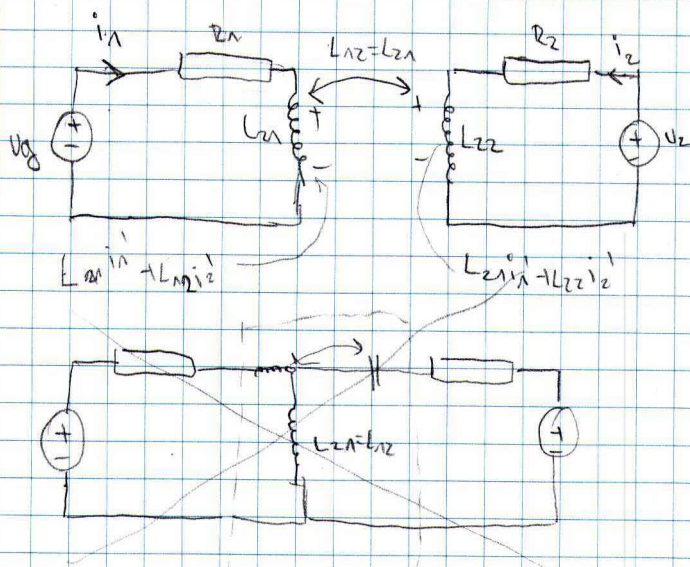 i1 R1 L12=L21 R2 i2
+ +
ug + L21 + L22 + u2
- - - -
L21 i1' + L12 i2' L21 i1' + L22 i2'
+ L21=L12 +
- -